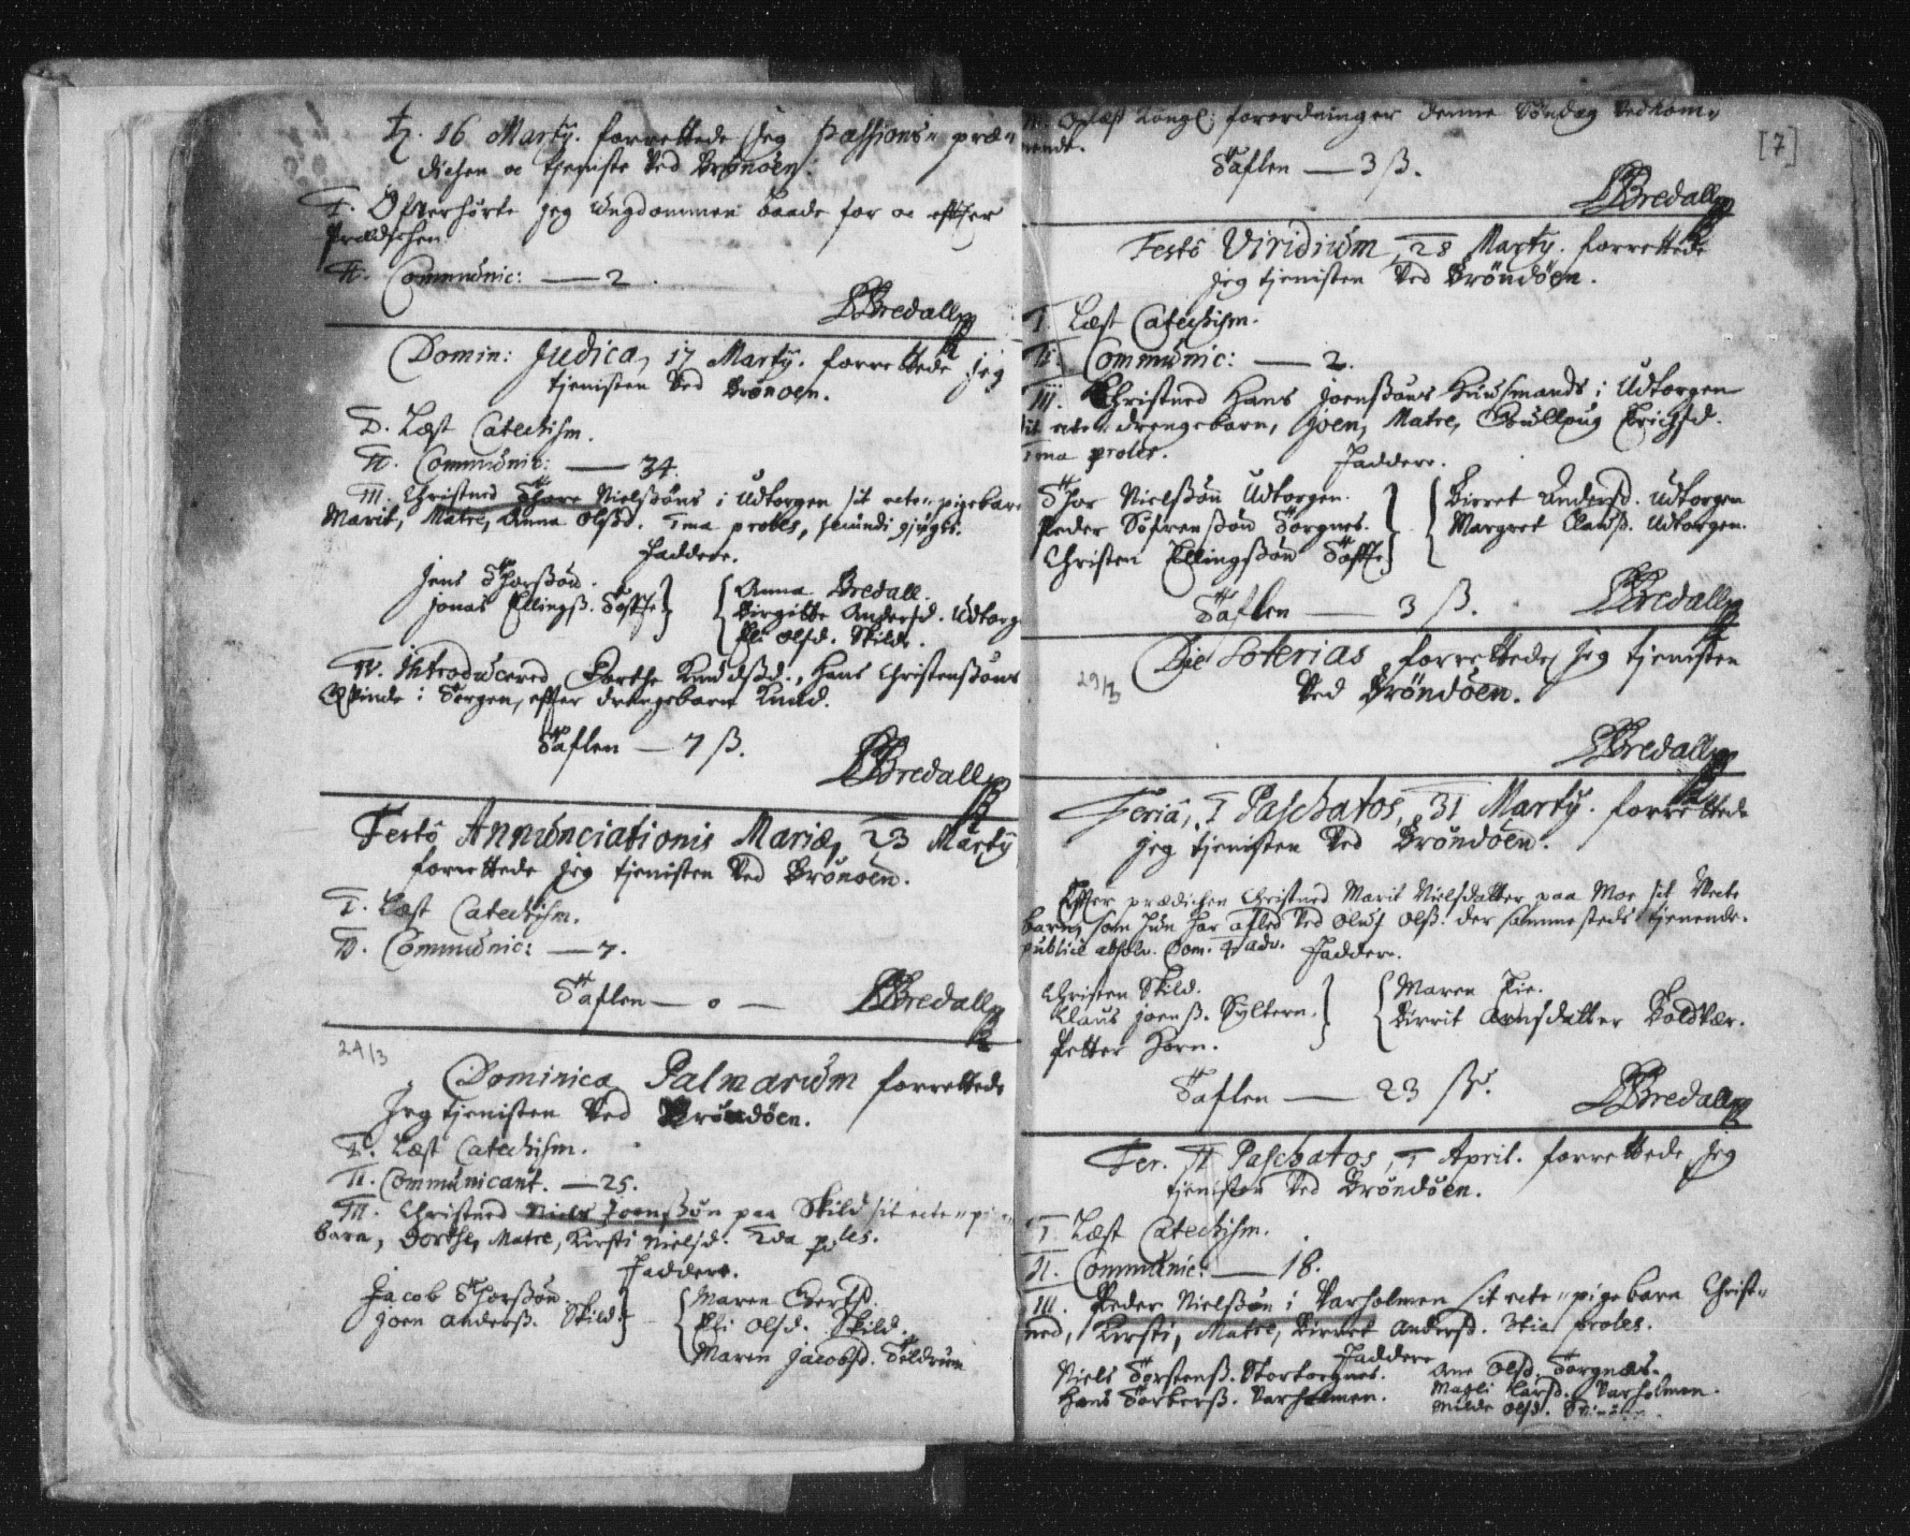 16 Martÿ. forrettede Jeg Passions- præ-
dichen oc tjeniste Ved Brönöen.
I. Ofverhörte jeg Ungdommen baade for oc effter
Prædichen
II. Communic: — 2.
Bredall
Domin: Judica, 17 Martÿ. forrettede Jeg
tjenisten Ved Brönöen.
I. Læst Catechism.
II. Communic: — 34.
III. Christned Thore Nielssöns i Udtorgen sit ecte- pigebarn
Marit, Matre, Anna Olssd. Ima proles, secundi
Faddere.
Jens Thorssön.
Jonas Ellingss. Tofte
Anna Bredall.
Birgitte Andersd. Udtorg
Eli Olsd. Skild.
IV. Introducered Dorthe Knudssd., Hans Christenssöns
Qvinde i Torgen, effter drengebarn Knud.
Taflen — 7 ß.
Bredall
Festô Annunciationis Mariæ, 23 Martÿ
forrettede Jeg tjenisten Ved Brönöen.
I. Læst Catechism.
II. Communic: — 7.
Taflen — 0 —
Bredall
24/3
Dominica Palmarum forrettede
Jeg tjenisten Ved Bröndöen.
I. Læst Catechism.
II. Communicant. — 25.
III. Christned Niels Joenssön paa Skild sit ecte-
barn, Dorthe, Matre, Kirsti Nielsd. IIda proles.
Faddere.
Jacob Thorssön.
Joen Anderss. Skild.
Maren Evertsd.
Eli Olsd. Skild.
Maren Jacobsd. Tildrum
Oplæst Kongl: forordninger denne Söndag Vedkom-
mende.
[7]
Taflen — 3 ß.
Bredall
Festô Viridium, 28 Martÿ. forrettede
Jeg tjenisten Ved Bröndöen.
I. Læst Catechism.
II. Communic: — 2.
III. Christned Hans Joenssöns Huusmands i Udtorgen
sit ecte- drengebarn, Joen, Matre, Gullaug Erichsd.
Ima proles.
Faddere.
Thor Nielssön Udtorgen.
Peder Söfrenssön Torgnes.
Christen Ellingssön Tofte
Birret Andersd. Udtorgen
Margret Clausd. Udtorgen.
Taflen — 3 ß.
Bredall
29/3
Die Soterias forrettede Jeg tjenisten
Ved Bröndöen.
Bredall
Feriâ, I Paschatos, 31 Martÿ. forrettede
jeg tjenisten Ved Bröndöen.
Effter prædichen Christned Marit Nielsdatter paa Moe sit Uecte
barn, som hun har afled Ved Oluf Olss. der sammesteds tjenende.
publicè absolv. Dom. 4 adv.
Faddere.
Christen Skild.
Klaus Joenss. Sÿltern.
Petter Horn.
Maren Tie.
Birrit Arnsdatter Toldvær.
Taflen — 23 ß.
Bredall
Fer. II Paschatos, I April. forrettede Jeg
tjenisten Ved Bröndöen.
I. Læst Catechism.
II. Communic: — 18.
III. Peder Nielssön i Varholmen sit ecte- pigebarn Christ-
ned, Kirsti, Matre, Birret Andersd. 3tia proles.
Faddere
Niels Torstenss. Stortorgnes.
Hans Torberss. Varholmen.
Ane Olsd. Torgnæs.
Magli Larsd. Varholmen.
Milde Olsd.